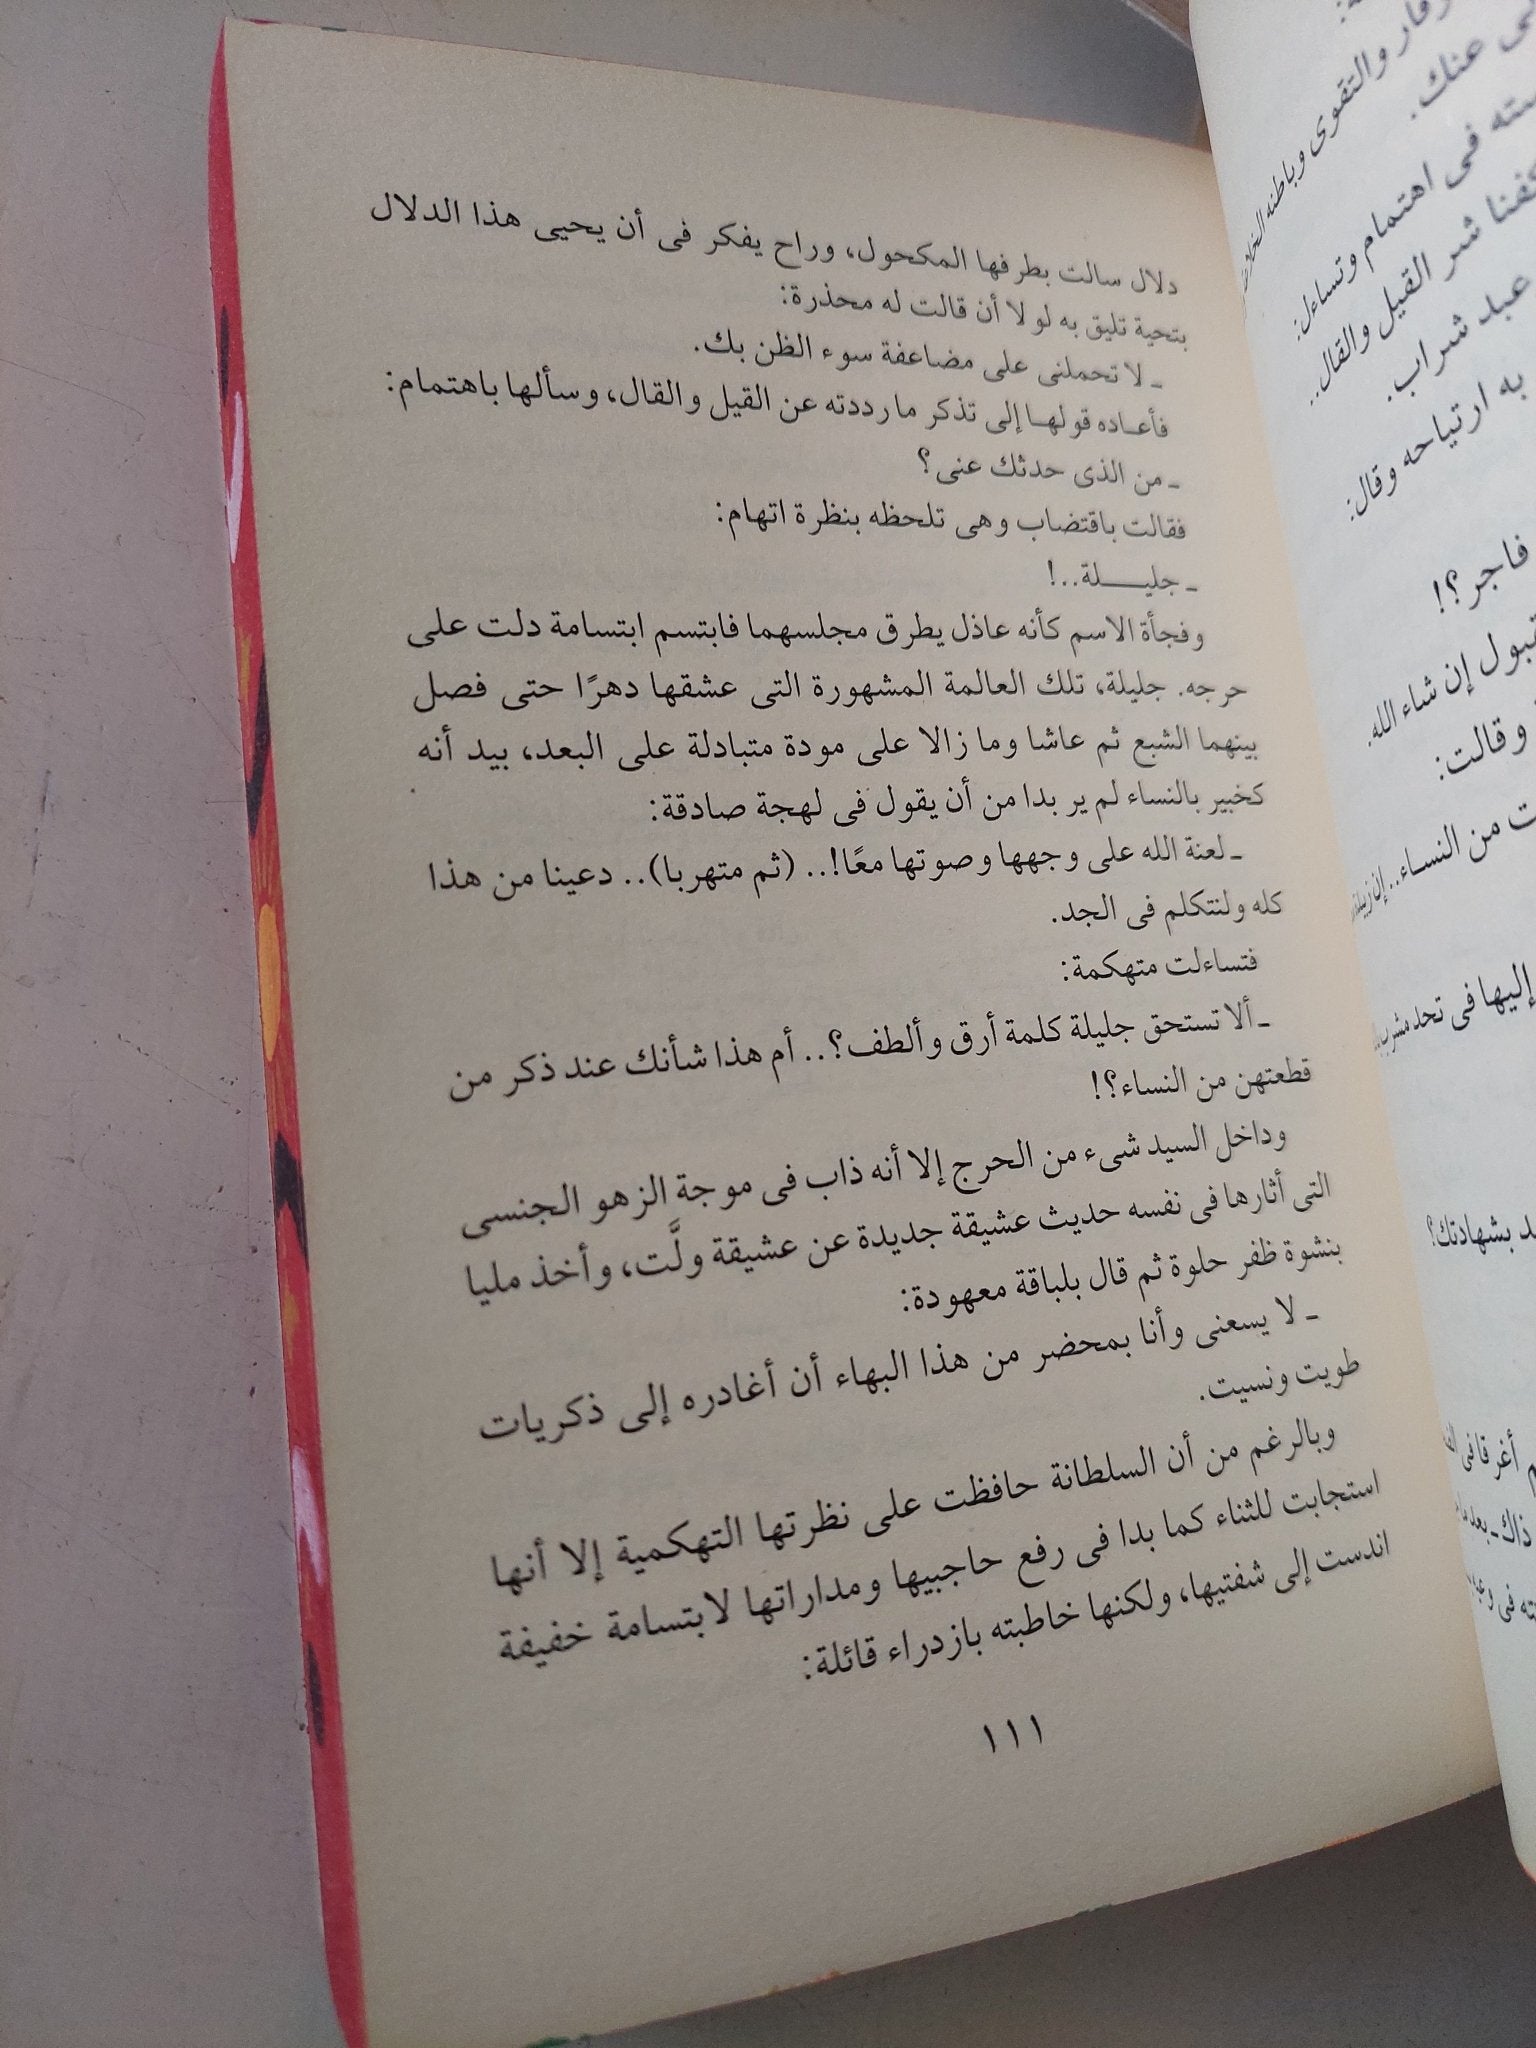 دلال سالت بطرفها المكحول، وراح يفكر فى أن يحيى هذا الدلال
بتحية تليق به لولا أن قالت له محذرة:
ـ لا تحملنى على مضاعفة سوء الظن بك.
فأعاده قولها إلى تذكر ما رددته عن القيل والقال، وسألها باهتمام:
ـ من الذى حدثك عنى؟
فقالت باقتضاب وهى تلحظه بنظرة اتهام:
ـ جليـــلة..!
وفجأة الاسم كأنه عاذل يطرق مجلسهما فابتسم ابتسامة دلت على
حرجه. جليلة، تلك العالمة المشهورة التى عشقها دهرًا حتى فصل
بينهما الشبع ثم عاشا وما زالا على مودة متبادلة على البعد، بيد أنه
كخبير بالنساء لم ير بدا من أن يقول فى لهجة صادقة:
ـ لعنة الله على وجهها وصوتها معًا!.. (ثم متهربا).. دعينا من هذا
كله ولنتكلم فى الجد.
فتساءلت متهكمة:
ـ ألا تستحق جليلة كلمة أرق وألطف؟.. أم هذا شأنك عند ذكر من
قطعتهن من النساء؟!
وداخل السيد شىء من الحرج إلا أنه ذاب فى موجة الزهو الجنسى
التى أثارها فى نفسه حديث عشيقة جديدة عن عشيقة ولَّت، وأخذ مليا
بنشوة ظفر حلوة ثم قال بلباقة معهودة:
ـ لا يسعنى وأنا بمحضر من هذا البهاء أن أغادره إلى ذكريات
طويت ونسيت.
وبالرغم من أن السلطانة حافظت على نظرتها التهكمية إلا أنها
استجابت للثناء كما بدا فى رفع حاجبيها ومداراتها لابتسامة خفيفة
اندست إلى شفتيها، ولكنها خاطبته بازدراء قائلة:
١١١
والتقوى وباطنه
ى عنك.
فى اهتمام وتساءل:
شر القيل والقال..
عبد شراب.
به ارتياحه وقال:
فاجر؟!
إن شاء الله.
وقالت:
من النساء..
إليها فى تحد
بشهادتك؟